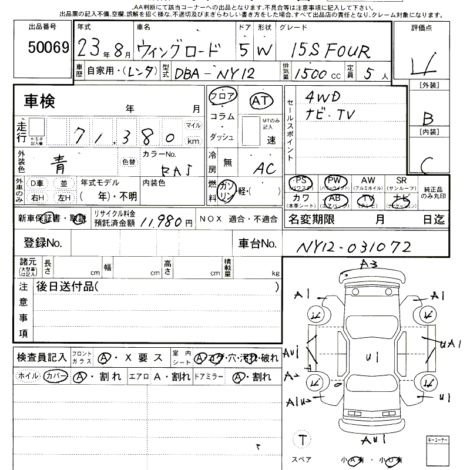 AA制断にて該当コーナーへの出品となります。不具合等は注意事項に記入して下さい。
出品票の記入不備、空欄、誤解を招く様な、不適切及びまぎらわしい書き方をした場合、すべて出品店の責任となり、クレーム対象になります。
出品番号 50069
年式 23年8月 車名 ウィングロード ドア 形状 5W グレード 15S FOUR
車歴 自家用・(レンタ) 型式 DBA-NY12 排気量 1500cc 定員 5人
評価点 4
[外装] B
[内装] C
車検 年 月
走行 71,380 マイル km
フロア コラム ダッシュ AT MTのみ記入 速
セールスポイント 4WD
ナビ・TV
外装色 青 色替 カラーNo. RAJ
冷房 無 AC
外車のみ D車 並 右H 左H 年式モデル (年)・不明 内装色
燃料 ガソリン 軽・( )
PS PW AW SR
カワ AB TV ナビ
純正品のみ丸印
新車保証書・取説 リサイクル料金 預託済金額 11,980円 NOX 適合・不適合
名変期限 年 月 日迄
登録No. 車台No. NY12-031072
諸元 長さ cm 幅 cm 高さ cm 積載量 kg
注意事項 後日送付品( )
A3
A1 A1
U1 UA1
A
U1
AU1
検査員記入 フロントガラス A・X要ス 室内 シート A コゲ・穴・汚れ・破れ
ホイル カバー A・割れ エアロ A・割れ ドアミラー A・割れ
T スペア
小A有・小U有
キーコーナー